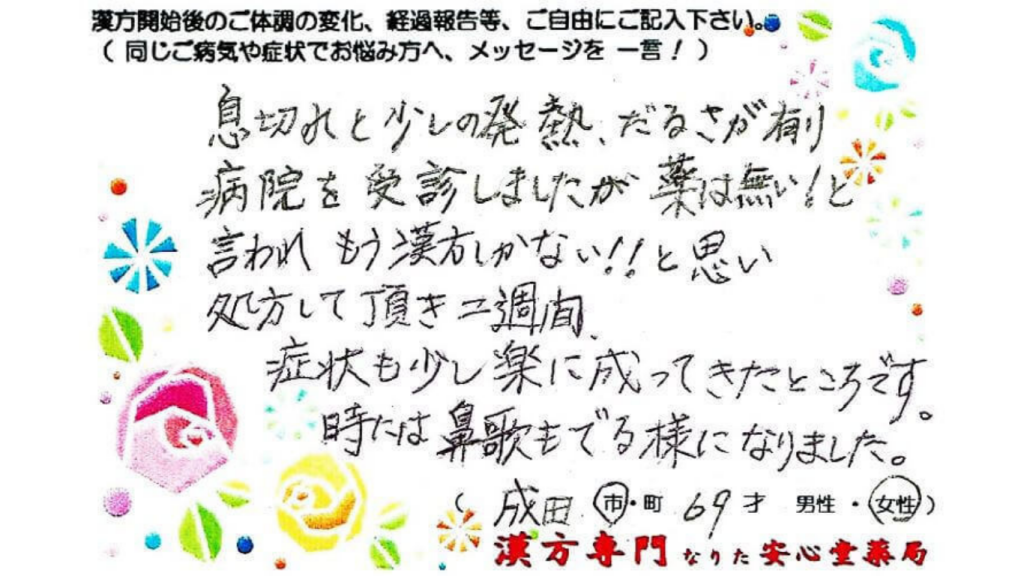 漢方開始後のご体調の変化、経過報告等、ご自由にご記入下さい。
( 同じご病気や症状でお悩み方へ、メッセージを 一言！ )
息切れと少しの発熱、だるさが有り
病院を受診しましたが薬は無い！と
言われ もう漢方しかない!!と思い
処方して頂き二週間、
症状も少し楽に成ってきたところです。
時には鼻歌もでる様になりました。
( 成田 市・町 69才 男性・女性 )
漢方専門 なりた安心堂薬局